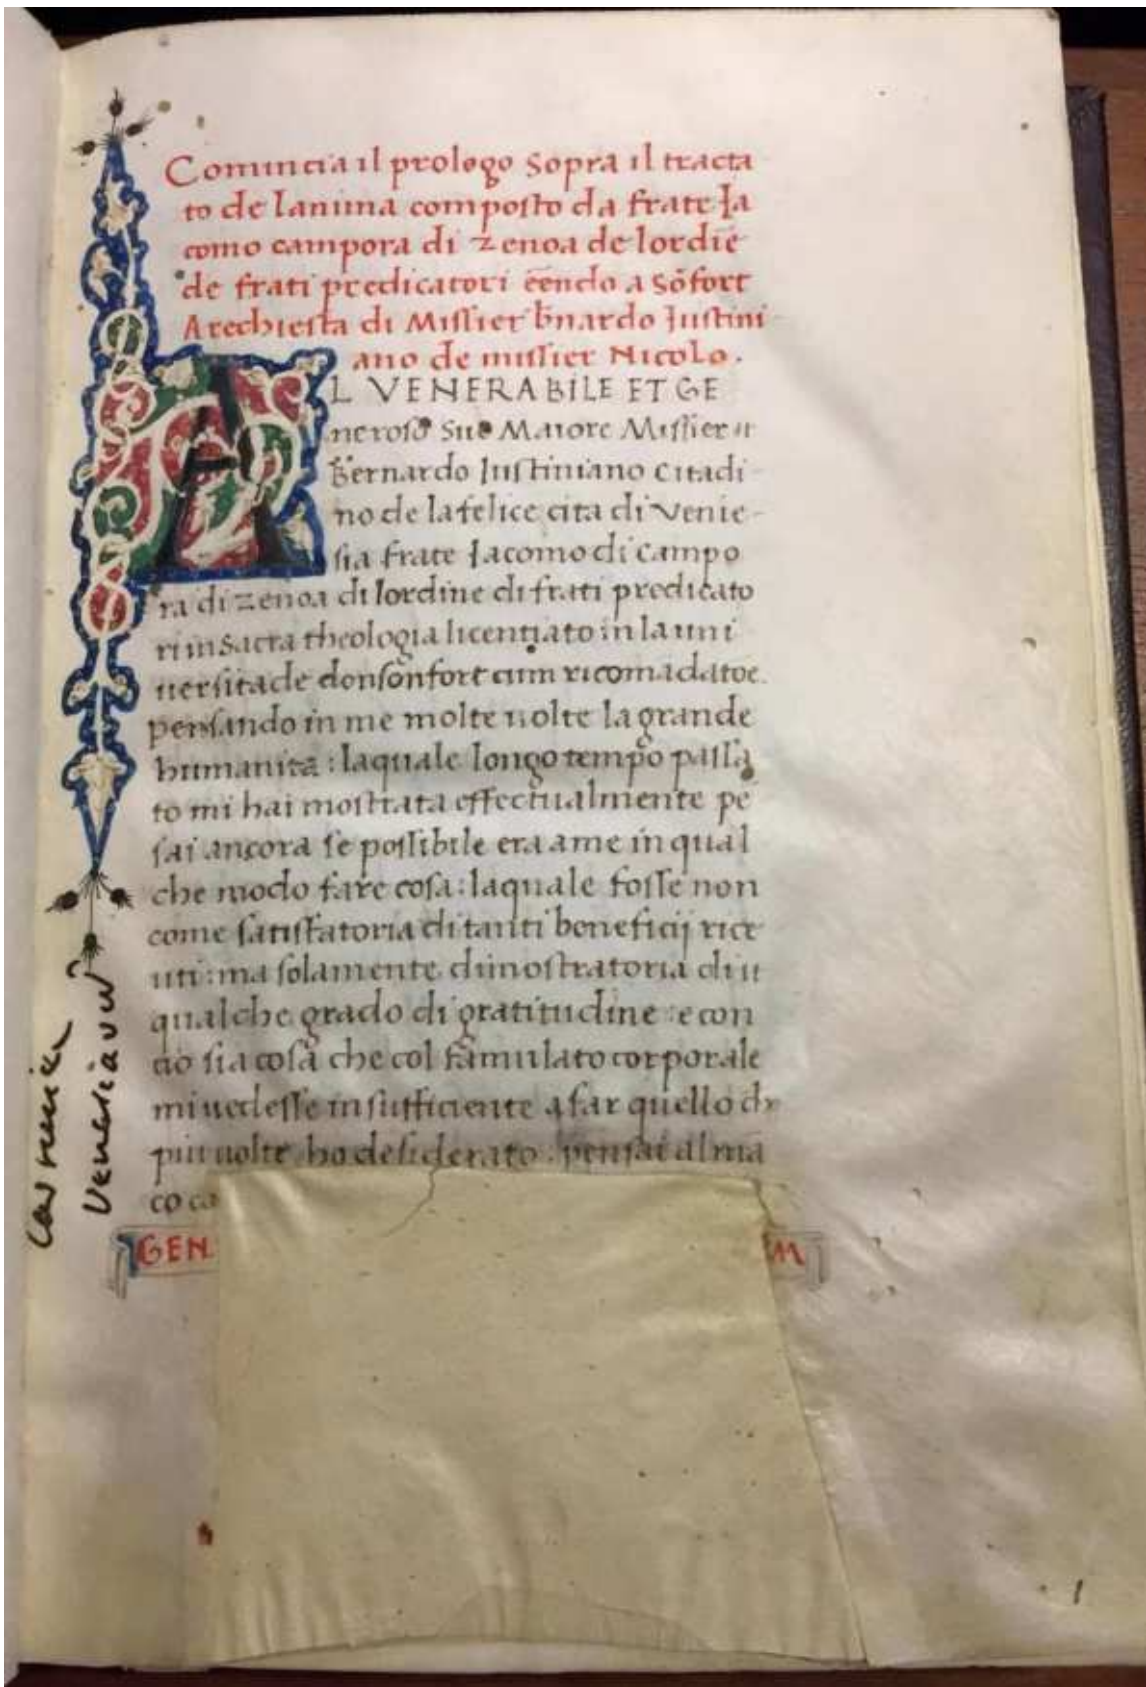 Comincia il prologo Sopra il tracta
to de lanima composto da frate Ja
como campora di zenoa de lordiē
de frati predicatori ēēndo a Sōfort
A rechiesta di Missier b̄nardo Justini
ano de missier Nicolo.
AL VENERABILE ET GE
neroso Suo Maiore Missier
Bernardo Justiniano Citadi
no de la felice cita di Venie-
sia frate Jacomo di Campo
ra di zenoa di lordine di frati predicato
ri in Sacra theologia licentiato in la uni
uersita de donsonfort cum ricomādatōe.
pensando in me molte uolte la grande
humanita : laquale longo tempo passa
to mi hai mostrata effectualmente pē
sai ancora se possibile era a me in qual
che modo fare cosa : laquale fosse non
come satisfatoria di tanti beneficij rice
uti : ma solamente dimostratoria di
qualche grado di gratitudine : e con
cio sia cosa che col famulato corporale
mi uedesse insufficiente a far quello ch
piu uolte ho desiderato : pensai almā
co ca
GEN
M
1